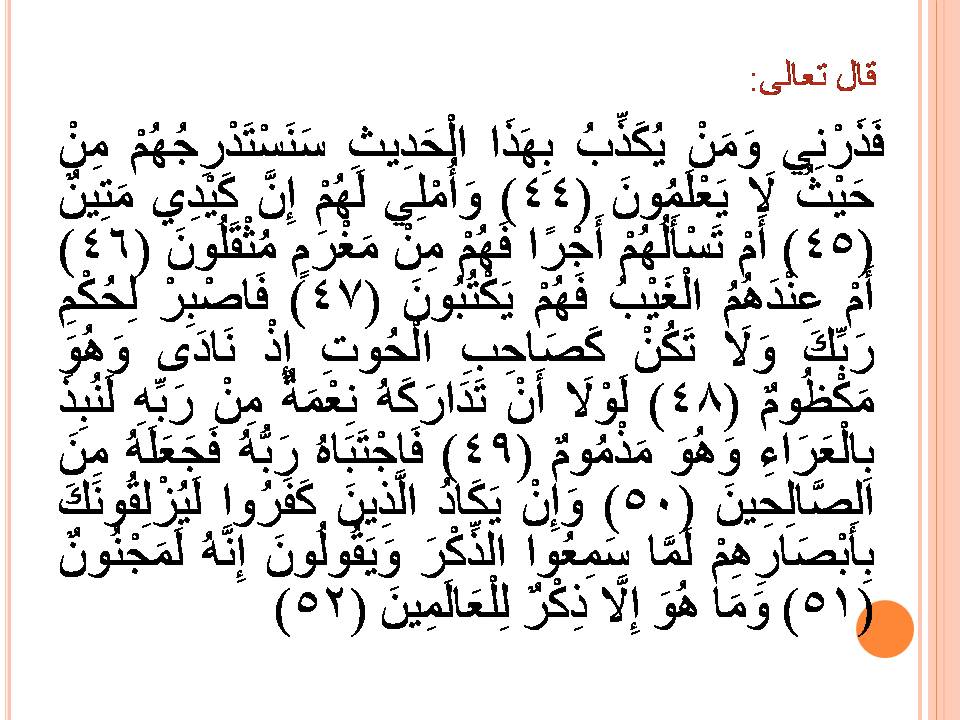 قال تعالى:
فَذَرْنِي وَمَنْ يُكَذِّبُ بِهَذَا الْحَدِيثِ سَنَسْتَدْرِجُهُمْ مِنْ
حَيْثُ لَا يَعْلَمُونَ (٤٤) وَأُمْلِي لَهُمْ إِنَّ كَيْدِي مَتِينٌ
(٤٥) أَمْ تَسْأَلُهُمْ أَجْرًا فَهُمْ مِنْ مَغْرَمٍ مُثْقَلُونَ (٤٦)
أَمْ عِنْدَهُمُ الْغَيْبُ فَهُمْ يَكْتُبُونَ (٤٧) فَاصْبِرْ لِحُكْمِ
رَبِّكَ وَلَا تَكُنْ كَصَاحِبِ الْحُوتِ إِذْ نَادَى وَهُوَ
مَكْظُومٌ (٤٨) لَوْلَا أَنْ تَدَارَكَهُ نِعْمَةٌ مِنْ رَبِّهِ لَنُبِذَ
بِالْعَرَاءِ وَهُوَ مَذْمُومٌ (٤٩) فَاجْتَبَاهُ رَبُّهُ فَجَعَلَهُ مِنَ
الصَّالِحِينَ (٥٠) وَإِنْ يَكَادُ الَّذِينَ كَفَرُوا لَيُزْلِقُونَكَ
بِأَبْصَارِهِمْ لَمَّا سَمِعُوا الذِّكْرَ وَيَقُولُونَ إِنَّهُ لَمَجْنُونٌ
(٥١) وَمَا هُوَ إِلَّا ذِكْرٌ لِلْعَالَمِينَ (٥٢)